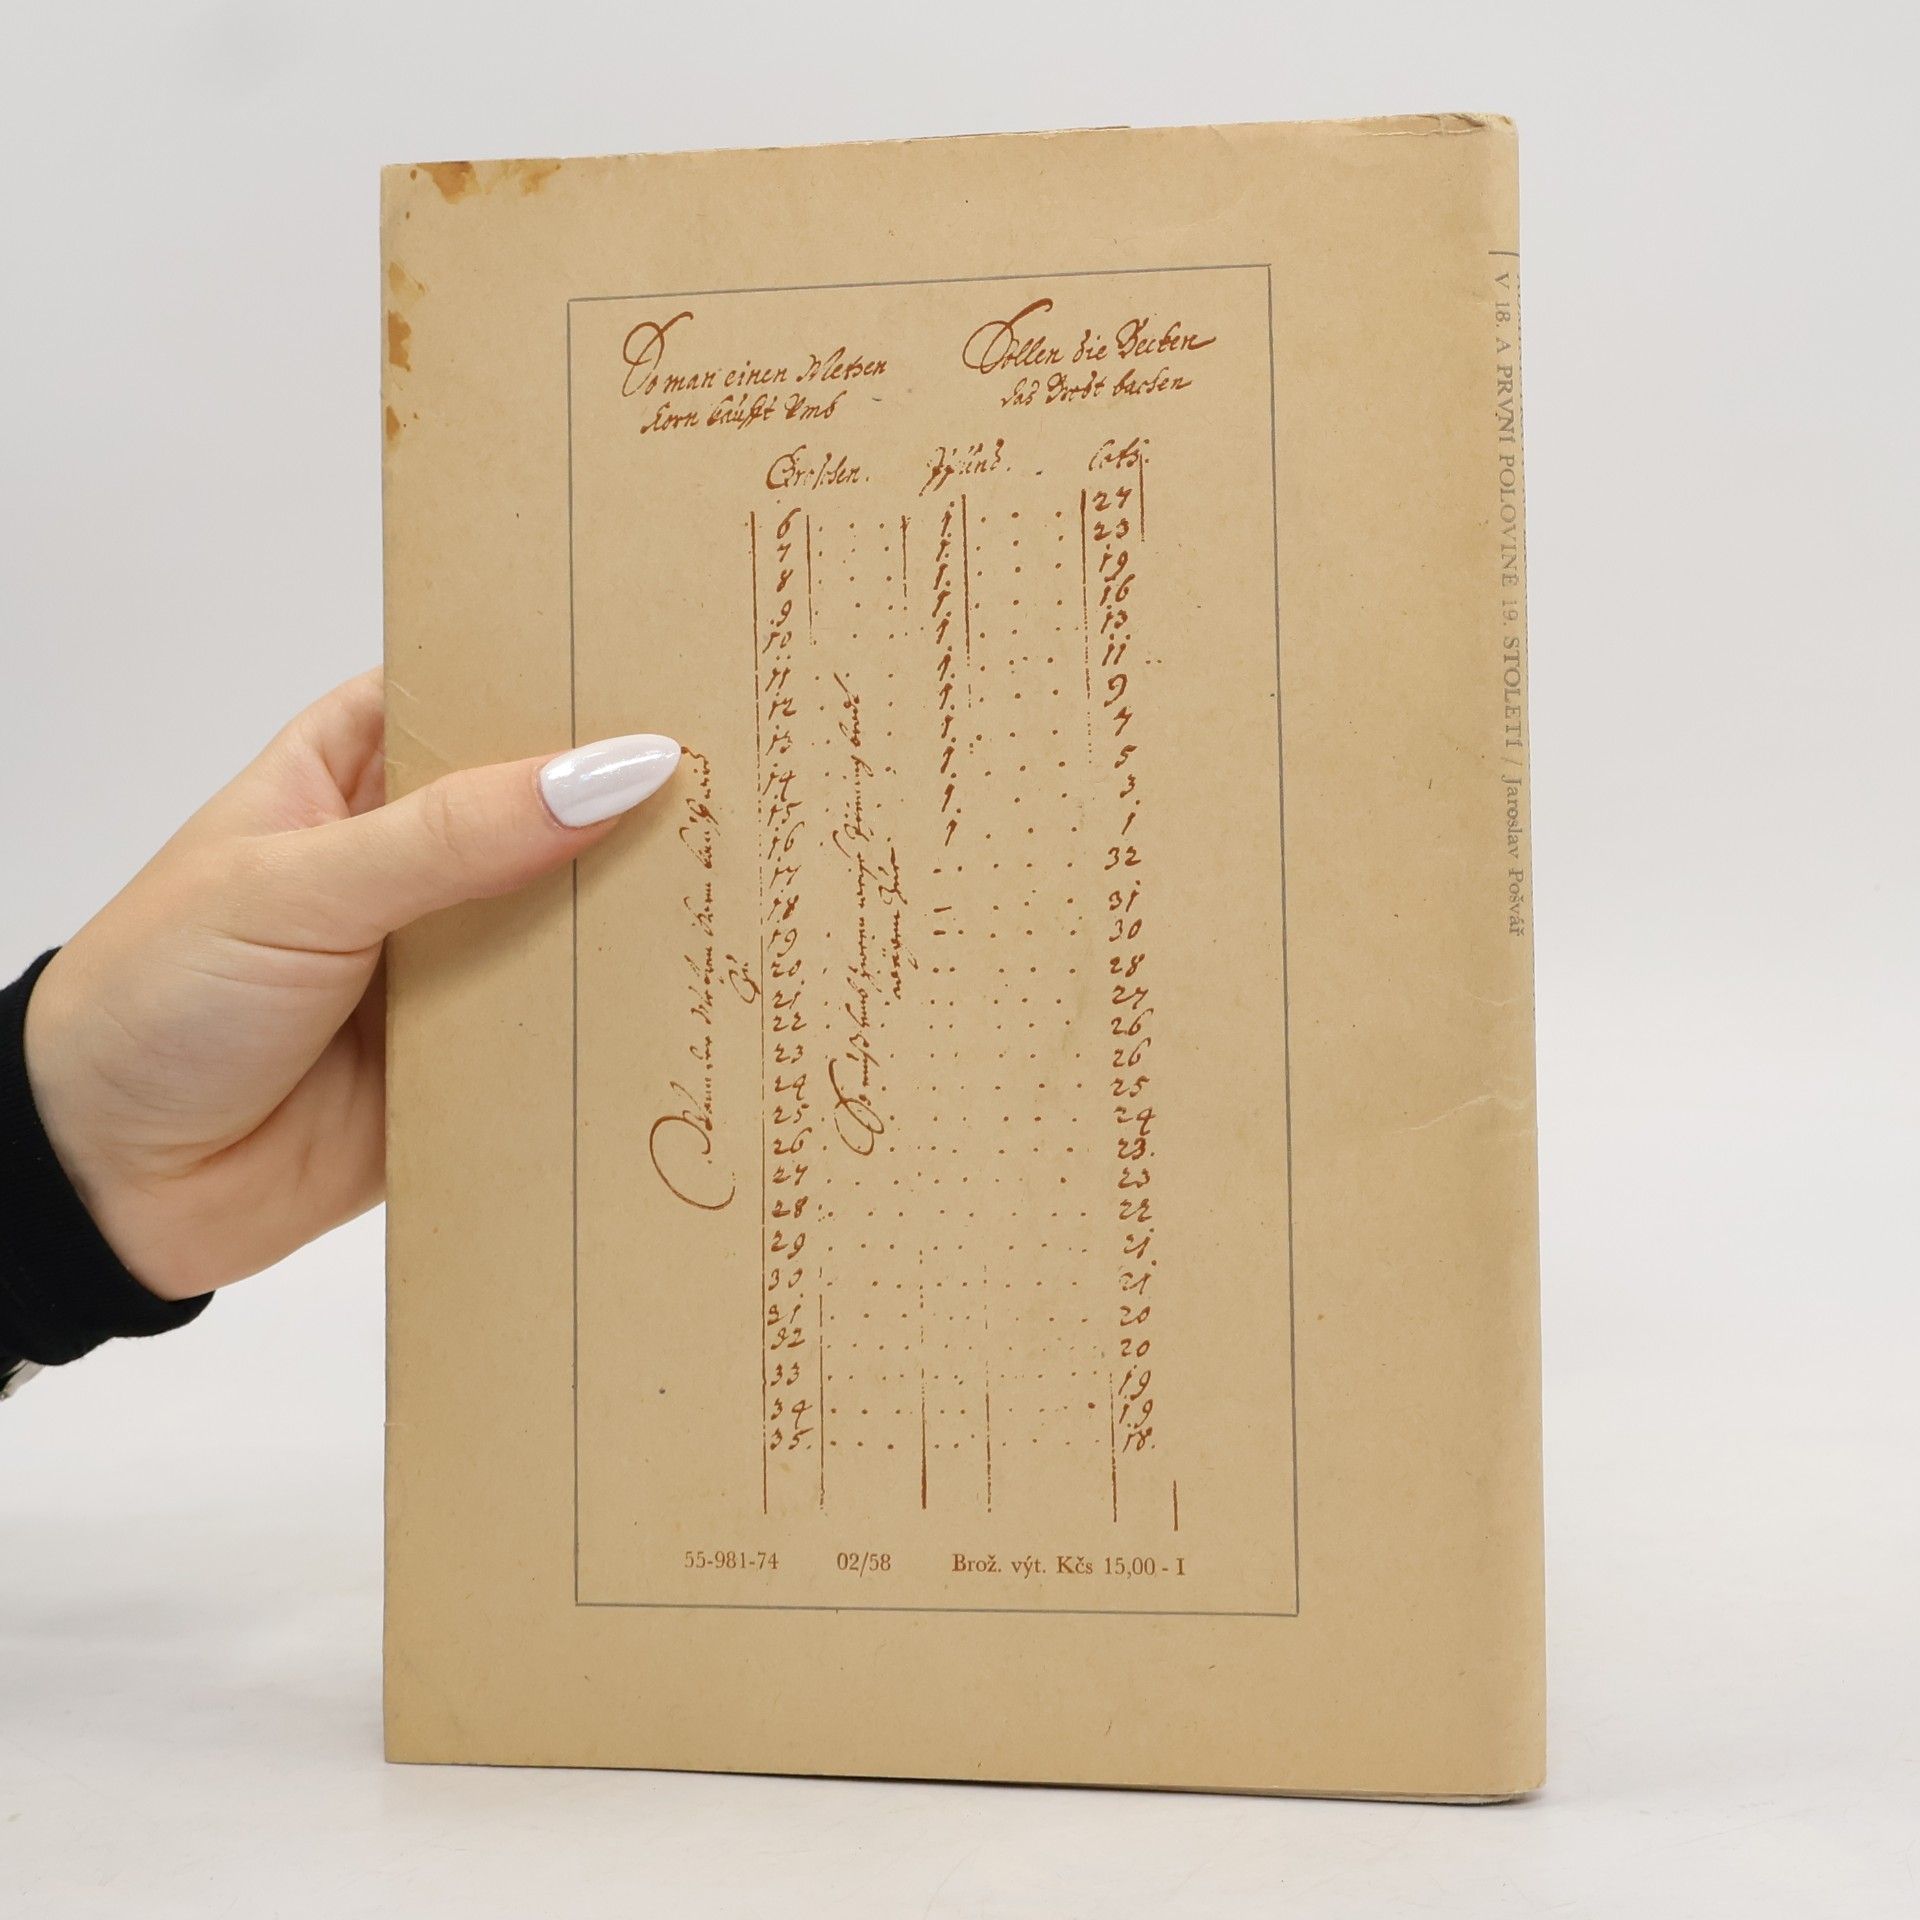 So man einen Metzen
Korn kaufft Vmb
Sollen die Becken
das Brodt bachen
Groschen. Pfund. Loth.
6 1. 27
7 1. 23
8 1. 19
9 1. 16
10 1. 13
11 1. 11
12 1. 9
13 1. 7
14 1. 5
15 1. 3
16 1 1
17 32
18 31
19 30
20 28
21 27
22 26
23 26
24 25
25 24
26 23.
27 23
28 22
29 21
30 21
31 20
32 20
33 19
34 19
35. 18.
55-981-74 02/58 Brož. výt. Kčs 15,00 - I
V 18. A PRVNÍ POLOVINĚ 19. STOLETÍ / Jaroslav Pošvář